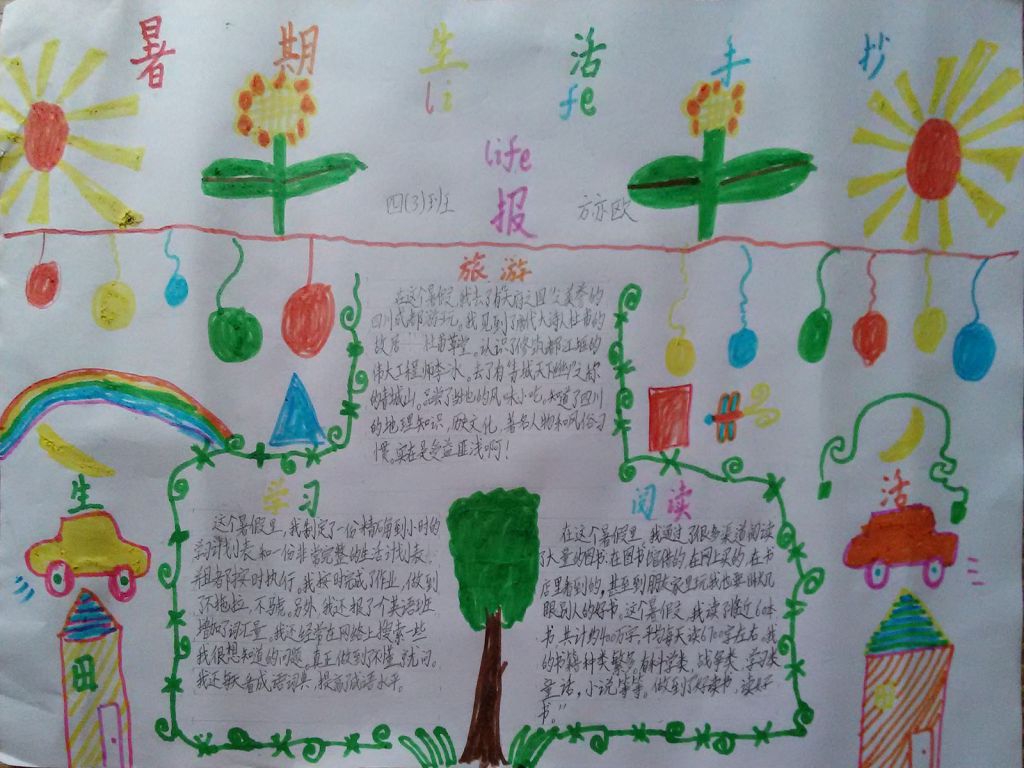 暑期生活手抄
li fe
life
报
四(3)班 方亦欧
旅游
在这个暑假,我去了有天府之国之美誉的
四川成都游玩。我见到了唐代大诗人杜甫的
故居——杜甫草堂。认识了修筑都江堰的
伟大工程师李冰。去了有青城天下幽之称
的青城山。品尝了当地的风味小吃,知道了四川
的地理知识,历史文化,著名人物和风俗习
惯。实在是受益匪浅啊!
生
学习
这个暑假里,我制定了一份精确到小时的
学习计划表和一份非常完整的生活计划表,
并且都按时执行。我按时完成了作业,做到
了不拖拉,不骄。另外,我还报了个英语班
增加了词汇量。我还经常在网络上搜索一些
我很想知道的问题。真正做到了不懂就问。
我还看成语词典,提高成语水平。
阅读
在这个暑假里,我通过了很多渠道阅读
了大量的图书。在图书馆借的,在网上买的,在书
店里看到的,甚至到朋友家里玩我也要
眼别人的好书。这个暑假,我读了接近60本
书,共计约400万字,平均每天读6700字左右。我
的书籍种类繁多,有科学类,战争类,学习类
童话,小说等等。做到了好读书,读好
书。"
活